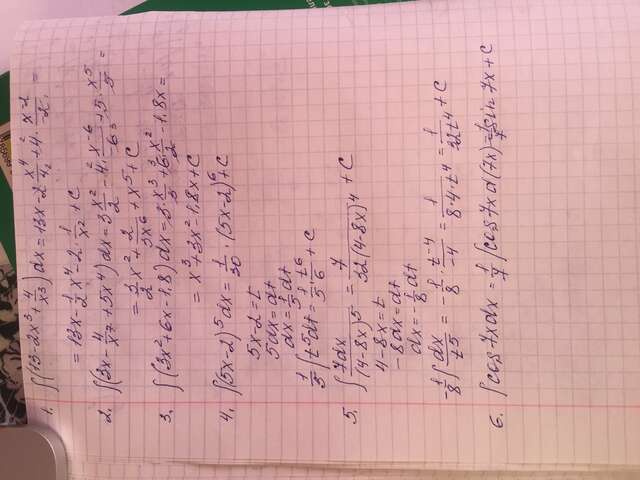 1. ∫(13-2x³+4/x³)dx = 13x-2 x⁴/4₂ + 4² · x⁻²/-2₁ =
= 13x - 1/2 x⁴ - 2 · 1/x² + C
2. ∫(3x - 4/x⁷ + 5x⁴)dx = 3 x²/2 - 4² · x⁻⁶/-6₃ + 5 · x⁵/5 =
= 3/2 x² + 2/3x⁶ + x⁵ + C
3. ∫(3x²+6x-1,8)dx = 3 · x³/3 + 6³ · x²/2 - 1,8x =
= x³+3x²-1,8x+C
4. ∫(5x-2)⁵dx = 1/30 · (5x-2)⁶+C
5x-2=t
5dx=dt
dx=1/5 dt
1/5 ∫t⁵dt = 1/5 · t⁶/6 + C
5. ∫ 7dx/(4-8x)⁵ = 7/32(4-8x)⁴ + C
4-8x=t
-8dx=dt
dx=-1/8 dt
-1/8 ∫ dx/t⁵ = -1/8 · t⁻⁴/-4 = 1/8·4·t⁴ = 1/32t⁴ + C
6. ∫cos7xdx = 1/7 ∫cos7xd(7x) = 1/7 sin7x+C